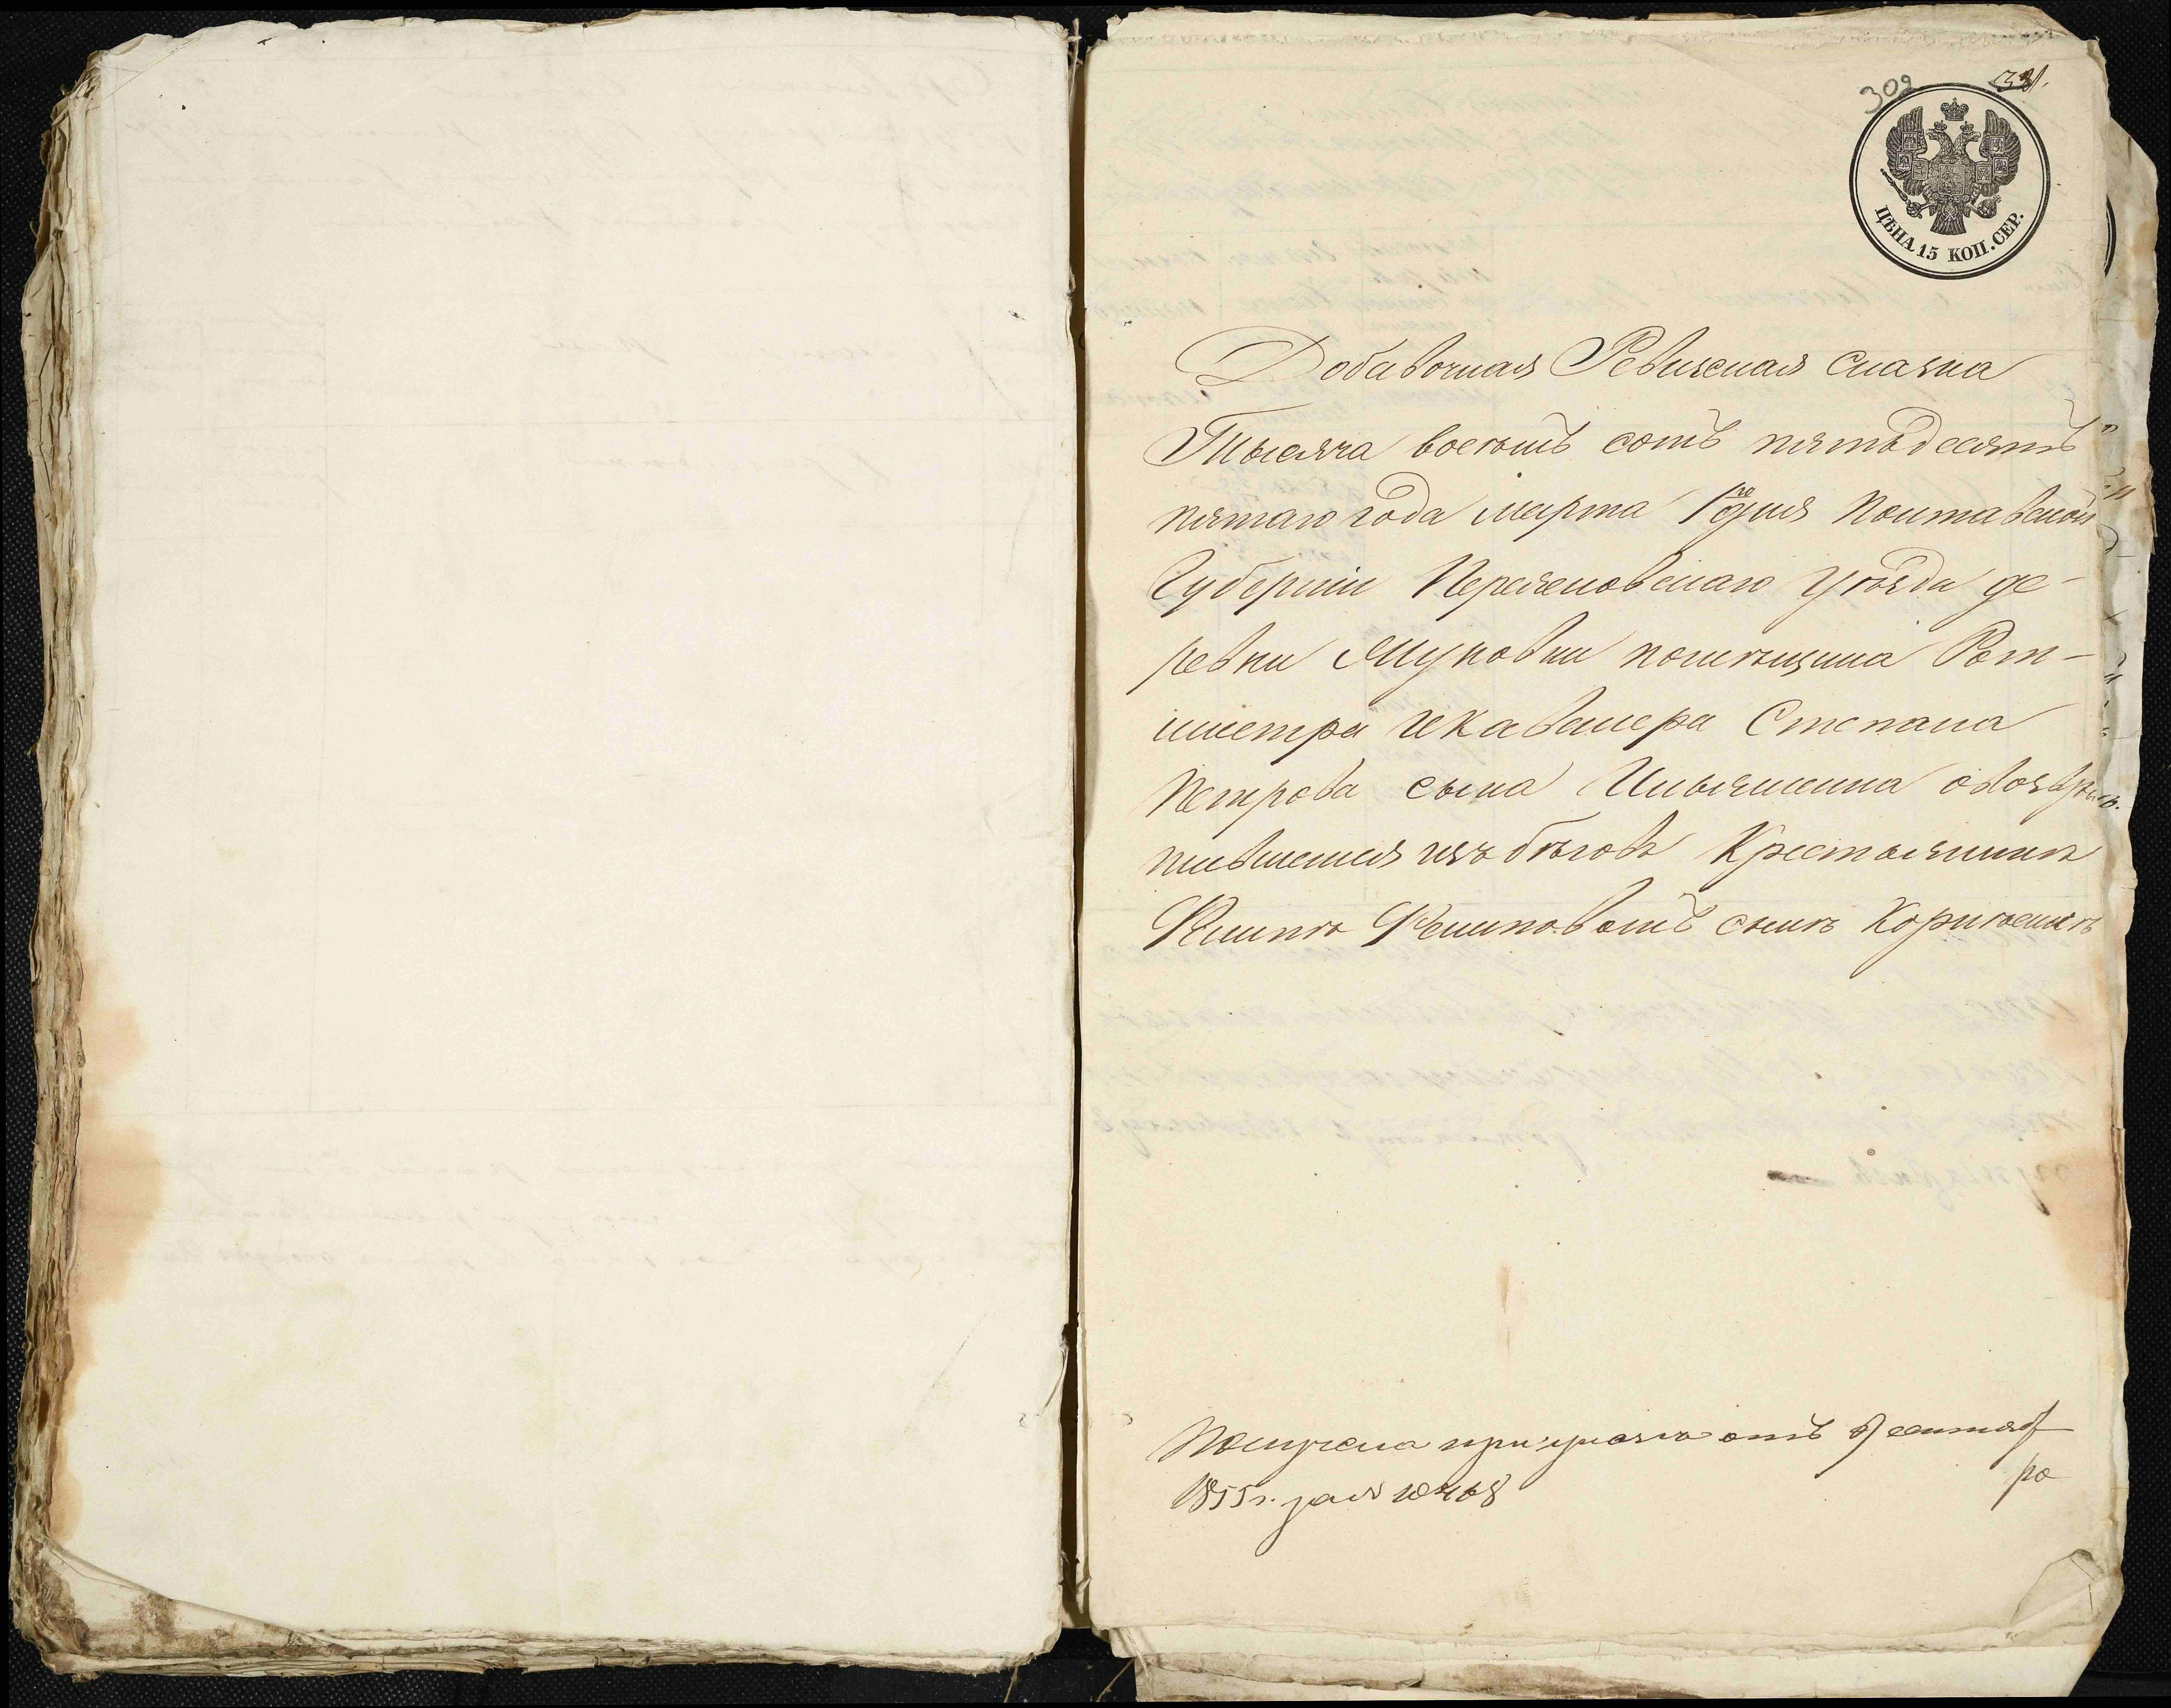 309
331.
ЦѢНА 15 КОП. СЕР.
Добавочная Ревизская сказка
Тысяча восемь сотъ пятьдесятъ
пятаго года марта 1го дня Полтавской
Губерніи Переяславскаго уѣзда де-
ревни помѣщика Рот-
мистра и Кавалера Степана
Петрова сына Ильяшенка о возвра-
тившемся изъ бѣговъ Крестьянинѣ
Филипѣ Филиповомъ сынѣ
Получена при указѣ отъ сентяб
ря
1855 г. за №